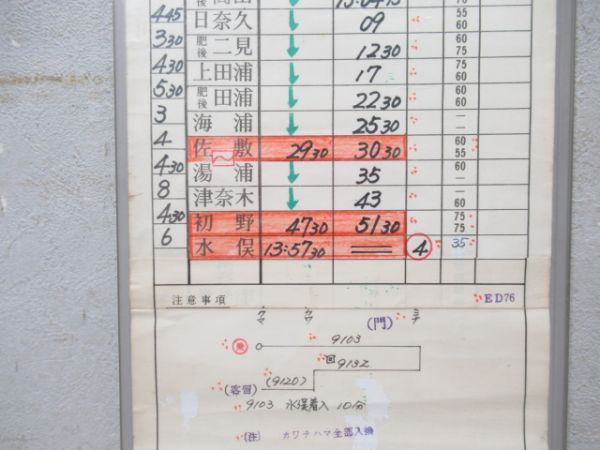 肥後高田 13:04 45 70
4 45 日奈久 ↓ 09 55 60
3 30 肥後二見 ↓ 12 30 60 75
4 30 上田浦 ↓ 17 75 60
5 30 肥後田浦 ↓ 22 30 60 60
3 海浦 ↓ 25 30 — —
4 佐敷 29 30 30 30 60 55
4 30 湯浦 ↓ 35 60 —
8 津奈木 ↓ 43 — 60
4 30 初野 47 30 51 30 75 75
6 水俣 13:57 30 ═ ④ 35
注意事項 ED76
クマ カワ ミナ
(門)
乗 9103
回 9132
(客留) (9120)
9103 水俣着入 10分
(注) カワチハマ全部入換